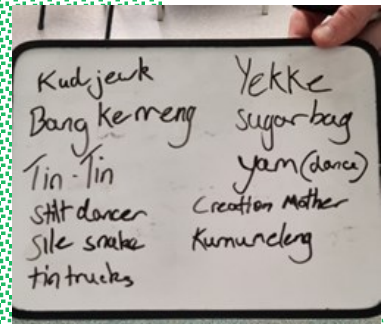 Kudjewk
Bang kerreng
Tin-Tin
stilt dancer
sile snake
tin trucks
Yekke
sugarbag
yam (dance)
Creation Mother
Kurruneleng